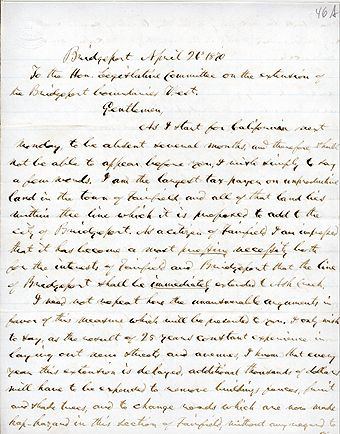 46 A
Bridgeport April 26 1870
To the Hon. Legislative Committee on the extension of
the Bridgeport boundaries West.
Gentlemen,
As I start for California next
Monday, to be absent several months, and therefore shall
not be able to appear before you, I wish simply to say
a few words. I am the largest tax-payer on unproductive
land in the town of Fairfield and all of that land lies
within the line which it is proposed to add to the
city of Bridgeport. As a citizen of Fairfield I am impressed
that it has become a most pressing necessity both
for the interests of Fairfield and Bridgeport that the line
of Bridgeport shall be immediately extended to Ash Creek.
I need not repeat here the unanswerable arguments in
favor of this measure which will be presented to you, I only wish
to say, as the result of 25 years constant experience in
laying out new streets and avenues, I know that every
year this extension is delayed, additional thousands of dollars
will have to be expended to remove buildings, fences, fruit
and shade trees, and to change roads which are now made
hap-hazard in this section of Fairfield, without any regard to